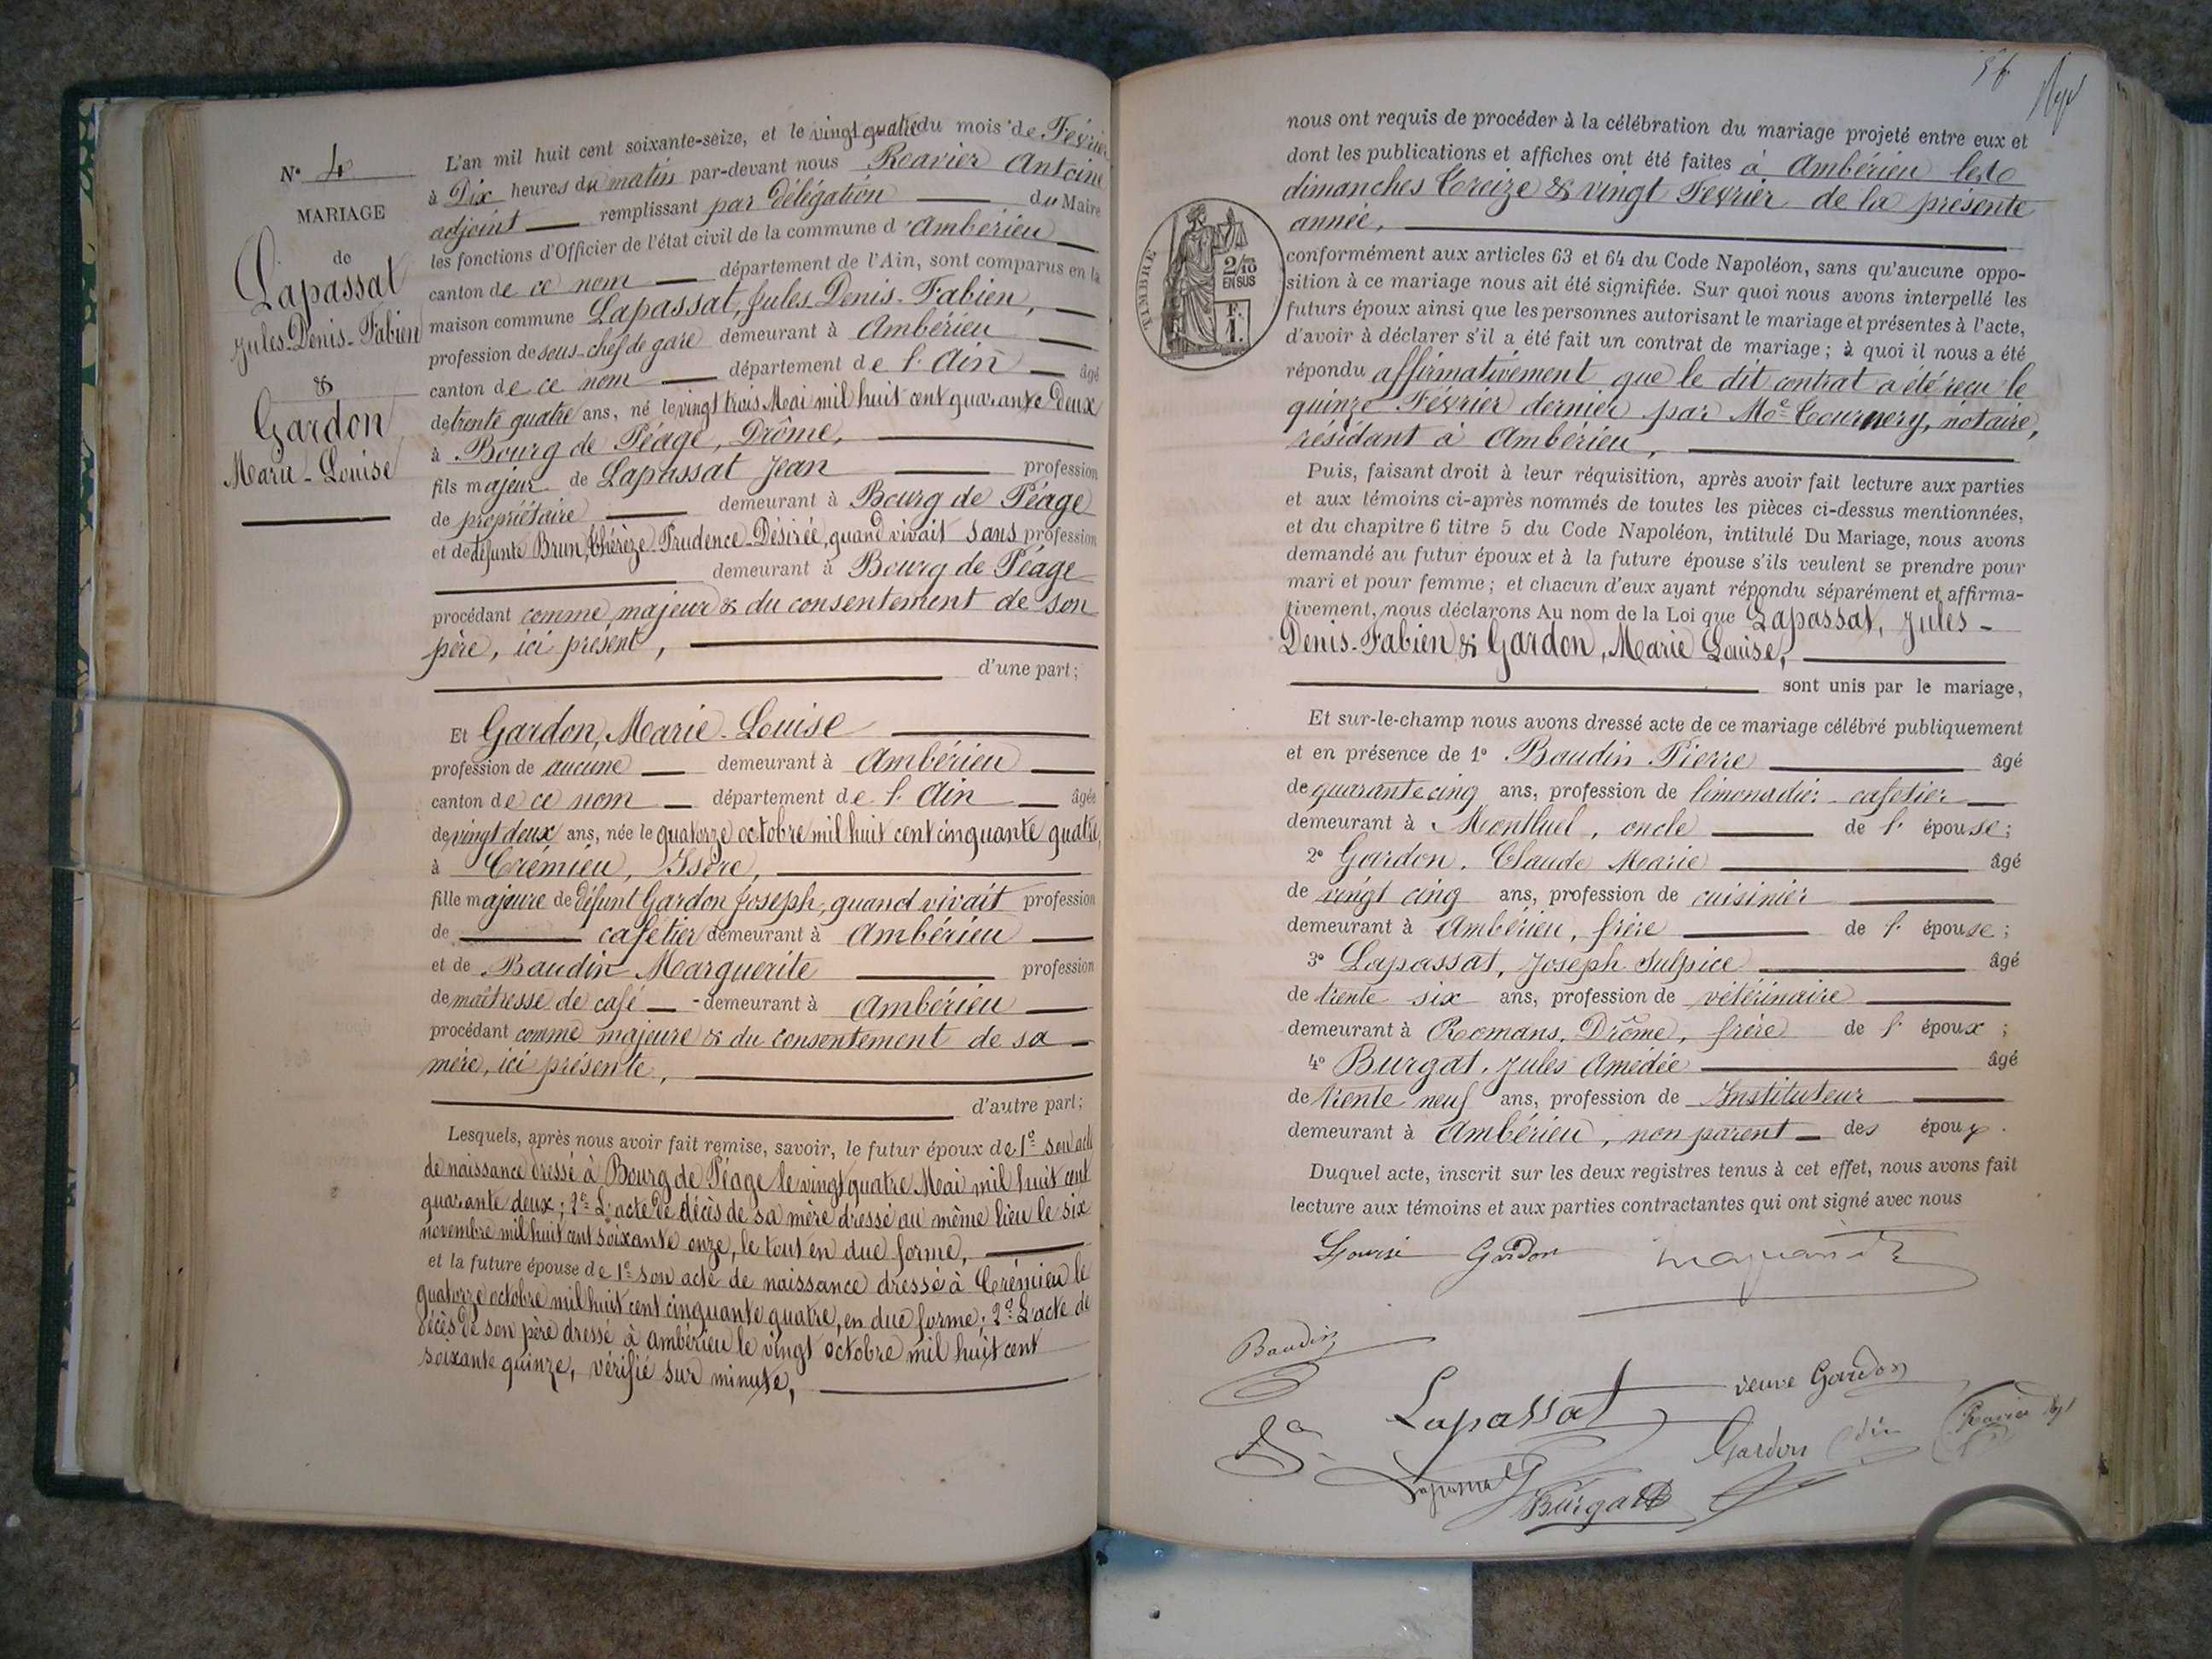 N° 4
MARIAGE
de
Lapassat
Jules-Denis-Fabien
&
Gardon
Marie-Louise
L'an mil huit cent soixante-seize, et le vingt quatre du mois de Février
à Dix heures du matin par-devant nous Ravier Antoine
adjoint remplissant par délégation du Maire
les fonctions d'Officier de l'état civil de la commune d'Ambérieu
canton de ce nom département de l'Ain, sont comparus en la
maison commune Lapassat, Jules-Denis-Fabien,
profession de sous-chef de gare demeurant à Ambérieu
canton de ce nom département de l'Ain âgé
de trente quatre ans, né le vingt trois Mai mil huit cent quarante deux
à Bourg de Péage, Drôme,
fils majeur de Lapassat Jean profession
de propriétaire demeurant à Bourg de Péage
et de défunte Brun, Thérèze-Prudence-Désirée, quand vivait sans profession
demeurant à Bourg de Péage
procédant comme majeur & du consentement de son
père, ici présent,
d'une part;
Et Gardon, Marie-Louise
profession de aucune demeurant à Ambérieu
canton de ce nom département de l'Ain âgée
de vingt deux ans, née le quatorze octobre mil huit cent cinquante quatre,
à Crémieu, Isère,
fille majeure de défunt Gardon Joseph, quand vivait profession
de cafetier demeurant à Ambérieu
et de Baudin Marguerite profession
de maîtresse de café demeurant à Ambérieu
procédant comme majeure & du consentement de sa
mère, ici présente,
d'autre part;
Lesquels, après nous avoir fait remise, savoir, le futur époux de 1° son acte
de naissance dressé à Bourg de Péage le vingt quatre Mai mil huit cent
quarante deux; 2° L'acte de décès de sa mère dressé au même lieu le six
novembre mil huit cent soixante onze, le tout en due forme,
et la future épouse de 1° son acte de naissance dressé à Crémieu le
quatorze octobre mil huit cent cinquante quatre, en due forme; 2° L'acte de
décès de son père dressé à Ambérieu le vingt octobre mil huit cent
soixante quinze, vérifié sur minute,
nous ont requis de procéder à la célébration du mariage projeté entre eux et
dont les publications et affiches ont été faites à Ambérieu les
dimanches treize & vingt Fevrier de la présente
année,
TIMBRE
2/10
EN SUS
F.
1.
conformément aux articles 63 et 64 du Code Napoléon, sans qu'aucune oppo-
sition à ce mariage nous ait été signifiée. Sur quoi nous avons interpellé les
futurs époux ainsi que les personnes autorisant le mariage et présentes à l'acte,
d'avoir à déclarer s'il a été fait un contrat de mariage; à quoi il nous a été
répondu affirmativement que le dit contrat a été reçu le
quinze Février dernier par Me Tournery, notaire,
résidant à Ambérieu,
Puis, faisant droit à leur réquisition, après avoir fait lecture aux parties
et aux témoins ci-après nommés de toutes les pièces ci-dessus mentionnées,
et du chapitre 6 titre 5 du Code Napoléon, intitulé Du Mariage, nous avons
demandé au futur époux et à la future épouse s'ils veulent se prendre pour
mari et pour femme; et chacun d'eux ayant répondu séparément et affirma-
tivement, nous déclarons Au nom de la Loi que Lapassat, Jules-
Denis-Fabien & Gardon, Marie Louise,
sont unis par le mariage,
Et sur-le-champ nous avons dressé acte de ce mariage célébré publiquement
et en présence de 1° Baudin Pierre âgé
de quarante cinq ans, profession de limonadier-cafetier
demeurant à Montluel, oncle de l'épouse;
2° Gardon, Claude Marie âgé
de vingt cinq ans, profession de cuisinier
demeurant à Ambérieu, frère de l'épouse;
3° Lapassat, Joseph Sulpice âgé
de trente six ans, profession de vétérinaire
demeurant à Romans, Drôme, frère de l'époux;
4° Burgat, Jules Amédée âgé
de trente neuf ans, profession de Instituteur
demeurant à Ambérieu, non parent des époux.
Duquel acte, inscrit sur les deux registres tenus à cet effet, nous avons fait
lecture aux témoins et aux parties contractantes qui ont signé avec nous
Louise Gardon
Baudin
Lapassat veuve Gardon
Gardon Ravier
Lapassat
Burgat